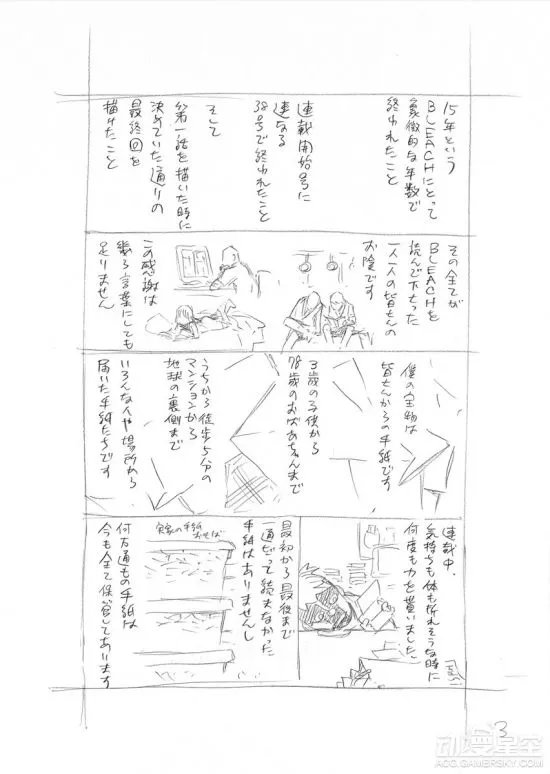 15年という
BLEACHにとって
象徴的な年数で
終われたこと
連載開始号に
連なる
38号で終われたこと
そして
第一話を描いた時に
決めていた通りの
最終回を
描けたこと
その全てが
BLEACHを
読んで下さった
一人一人の皆さんの
お陰です
この感謝は
幾ら言葉にしても
足りません
僕の宝物は
皆さんからの手紙です
3歳の子供から
78歳のおばあちゃんまで
うちから徒歩5分の
マンションから
地球の裏側まで
いろんな人や場所から
届いた手紙たちです
連載中、
気持ちも体も折れそうな時に
何度も力を貰いました
最初から最後まで
一通だって読まなかった
手紙はありませんし
実家の手紙
何万通もの手紙は
今も全て保管してあります
3
动漫星空
ACG.GAMERSKY.COM